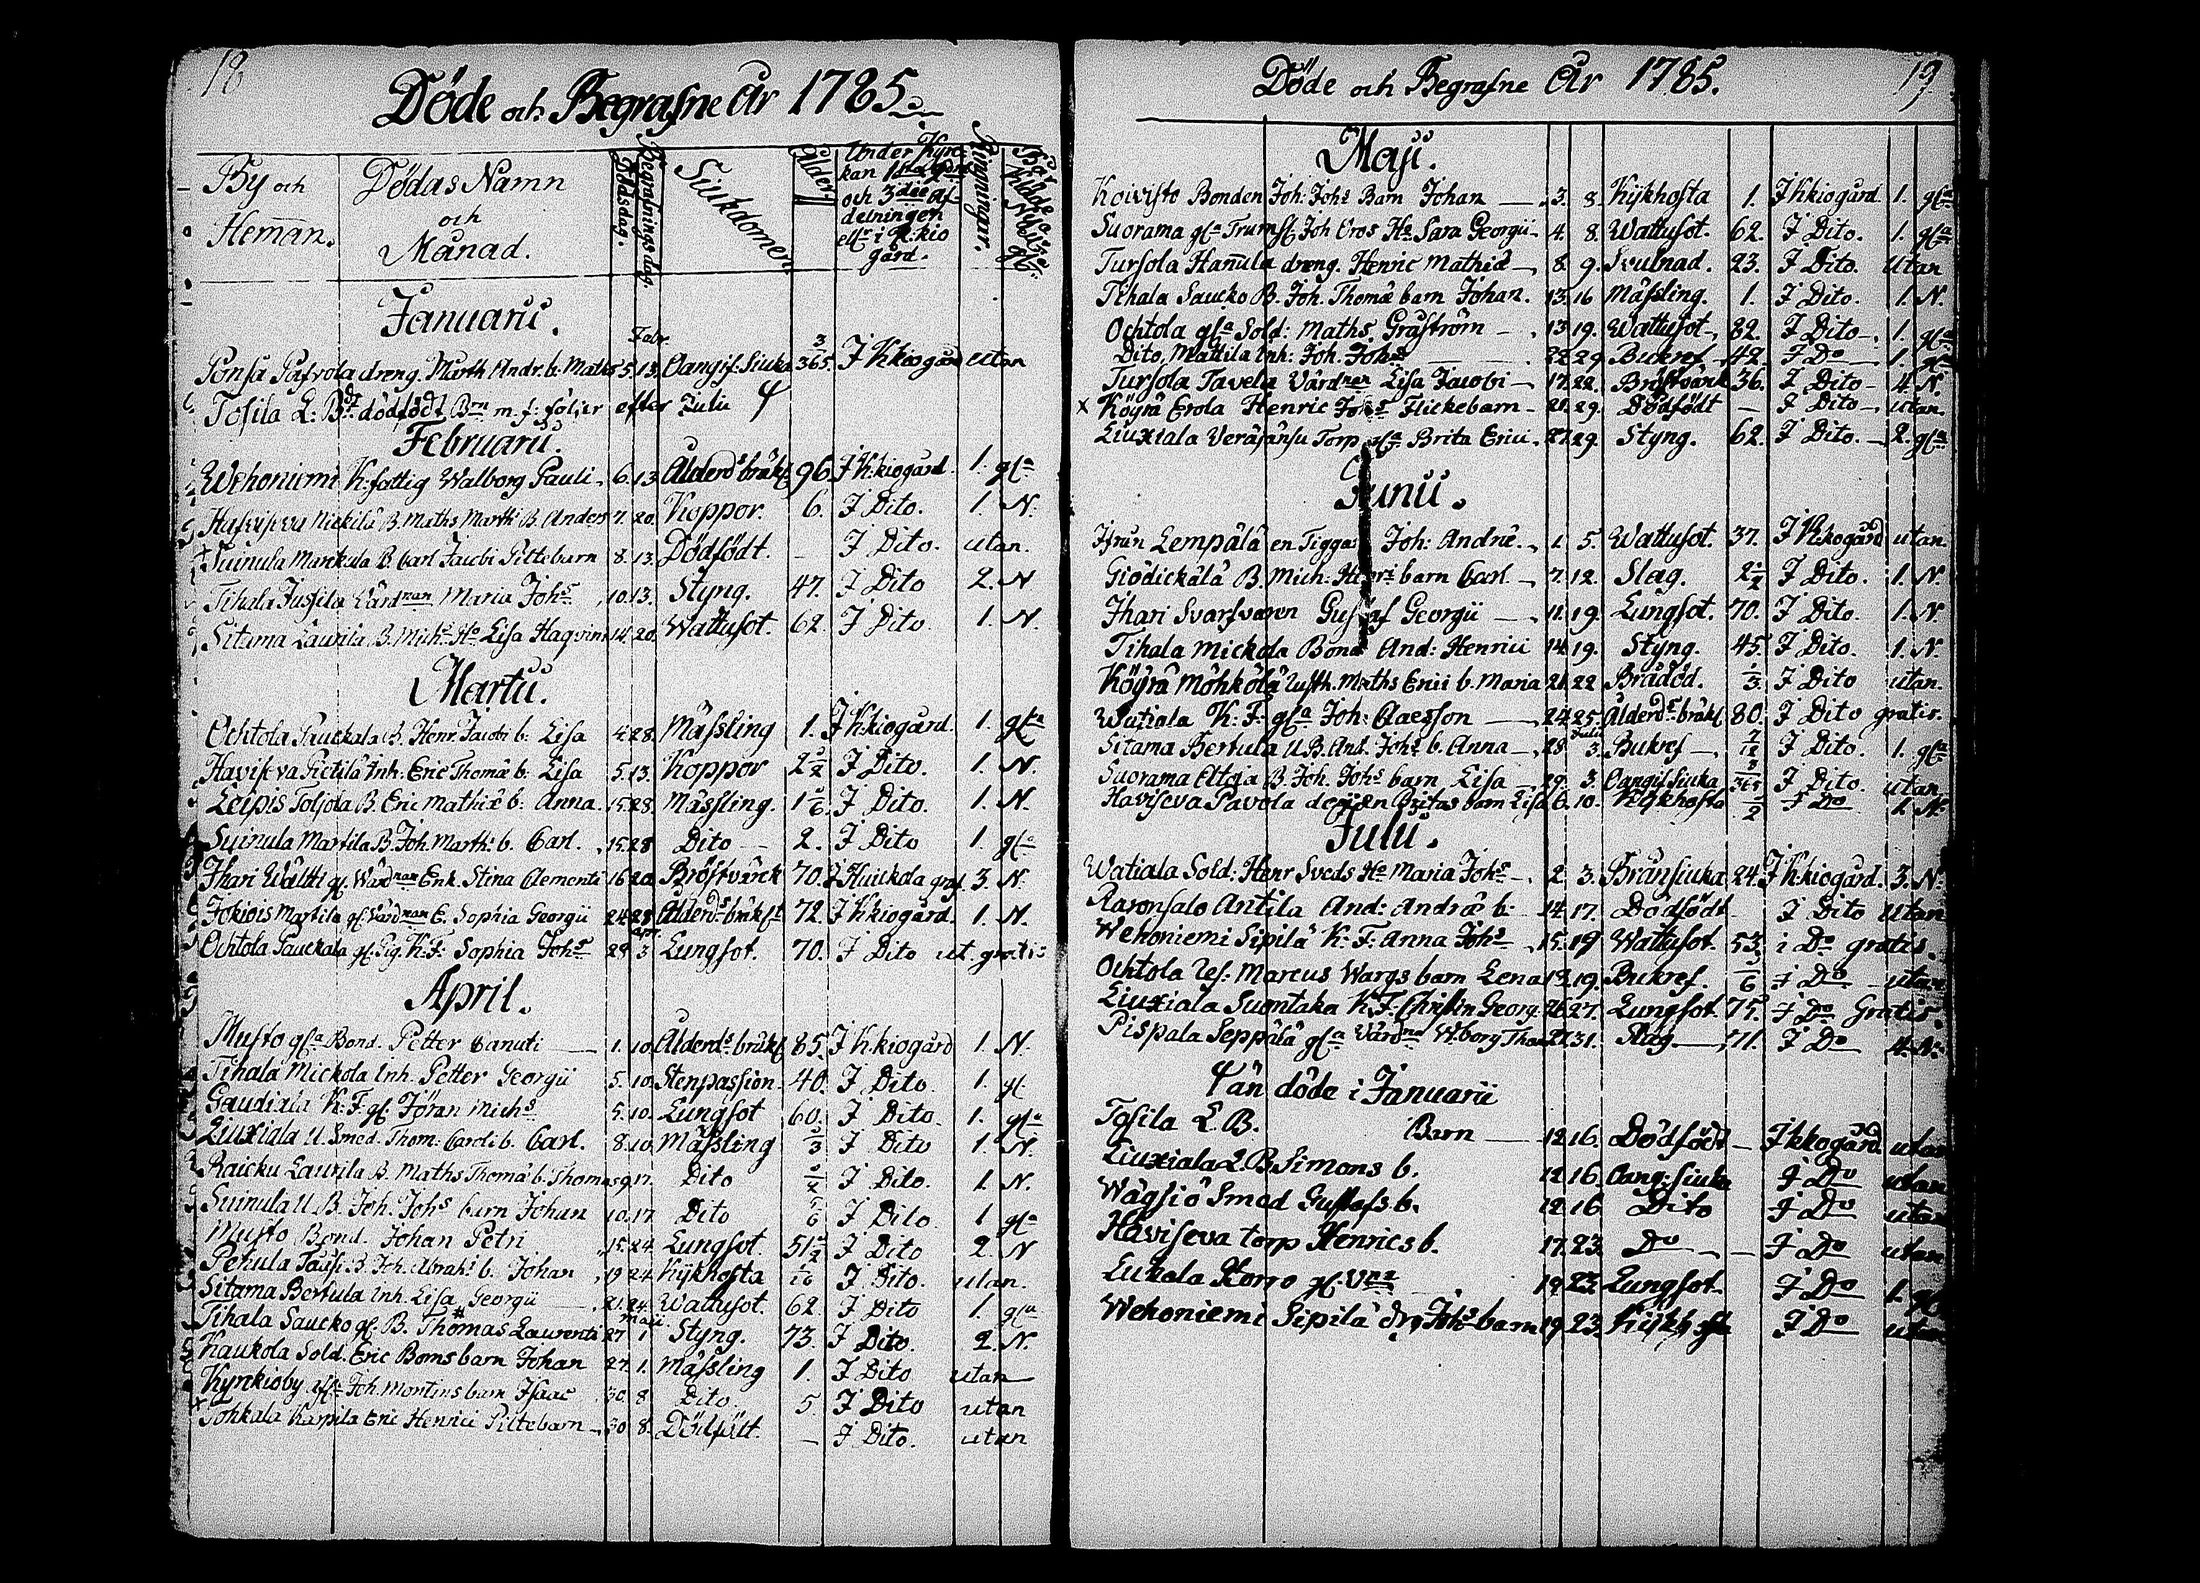 18
Döde och Begrafne År 1785.
By och
Heman.
Dödas Namn
och
Månad.
Dödsdag.
Begrafnings dag.
Siukdomen.
Ålder.
Under Kyrc
kan
och 3die af-
delningen
ellr i K:kio
gård.
Ringningar.
Januarii.
Febr.
Ponsa Pafvola dreng. Marth Andr. b. Maths 5. 13. Oangif: Siuka 3/365. J K:kiogård utan
Tofila L: Bdz. dödfödt Brn m. f: följer efter Julii
Februarii.
Wehoniemi K:fattig Walborg Pauli 6. 13. Ålderds bräkl. 96. J K:kiogård. 1. gla
Hafviseva Nickilä B. Maths Marth: B. Anders 7. 20. Koppor. 6. J Dito. 1. N.
Suinula Mankula B. Carl Jacobi Piltebarn 8. 13. Dödfödt. – J Dito. utan.
Tihala Jussila Värdnan Maria Johs 10. 13. Styng. 47. J Dito 2. N
Sitama Laurila, B. Michs Ho Lisa Haqvin 14. 20. Wattusot. 62. J Dito. 1. N.
Martii.
Ochtola Pauckala B. Henr. Jacobi b: Lisa 4. 28. Mässling 1. J K:kiogård. 1. gla
Haviseva Pictilä Inh: Eric Thomæ b: Lisa 5. 13. Koppor 2 1/2 J Dito. 1. N.
Leipis Toljola B. Eric Mathiæ b: Anna. 15. 28. Mässling. 1 1/6 J Dito. 1. N.
Suinula Martila B. Joh. Marth: b. Carl. 15. 28 Dito 2. J Dito 1. gla
Jhari Wältti gl. Värdnan Enk. Stina Clementi 16. 20. Bröstvärck 70. J Huickola graf. 3. N.
Jokiois Martila gl. Värdnan E. Sophia Georgii 24. 28 Ålderds bräkl. 72. J K:kiogård. 1. N.
apr.
Ochtola Pauckala gl. Pig. K:F: Sophia Johs 28 3 Lungsot. 70. J Dito ut. gratis
April.
Musto gla Bond. Petter Canuti 1. 10. Ålderds bräkl. 85. J K:kiogård 1. N.
Tihala Mickola Inh. Petter Georgii 5. 10. Stenpassion. 40. J Dito. 1. gl.
Gaudiala K:F. gl. Jöran Michs 5. 10. Lungsot 60. J Dito. 1. gla
Liuxiala U. Smed. Thom: Caroli b. Carl. 8. 10. Mässling 1/3 J Dito 1. N.
Raicku Laurila B. Maths Thomæ b. Thomas 9. 17. Dito J Dito. 1. N.
Suinula U. B. Joh. Johs barn Johan 10. 17 Dito 5/6 J Dito 1 gla
Musto Bond. Johan Petri 15. 24. Lungsot. 51 1/2 J Dito 2. N
Pehula Tausi B. Joh. Abrahs b. Johan 19 24. Kijkhosta J Dito. utan.
Sitama Bertula Inh. Lisa Georgii 21. 24. Wattusot. 62 J Dito 1. gla
maii.
Tihala Saucko gl. B. Thomas Laurenti 27 1 Styng. 73. J Dito. 2. N.
Kaukola Sold. Eric Boms barn Johan 27. 1. Mässling 1. J Dito utan
Kyrckioby gla Joh. Montins barn Isaac 30. 8 Dito. 5. J Dito utan
Tohkala Karpila Eric Henrici Piltebarn 30 8. Dödfödt. – J Dito. utan
Döde och Begrafne År 1785.
19
Maji.
Koivisto Bonden Joh: Johs Barn Johan 3. 8. Kijkhosta 1. J K:kiogård. 1. gla
Suorama gla Trumsl. Joh Oros Ho Sara Georgii 4. 8. Wattusot. 62. J Dito. 1. gla
Tursola Hannula dreng. Henric Mathiæ 8. 9. Svulnad. 23. J Dito. utan
Tihala Saucko B. Joh. Thomæ barn Johan. 13. 16 Mässling. 1. J Dito. 1. N.
Ochtola gla Sold: Maths Gråström 13 19. Wattusot. 82. J Dito. 1. gla
Dito, Mattila Inh: Joh. Johs 22 29. Bukref 42. J Do 1. gla
Tursola Tavela Värdnan Lisa Jacobi 17. 22. Bröstvärk 36. J Dito 4. N.
x Köyrä Erola Henric Johs Flickebarn 21. 29. Dödfödt – J Dito utan.
Liuxiala Veräjänsu Torp. gla Brita Erici 27. 29. Styng. 62. J Dito. 2. gla
Junii.
Ifrån Lempälä en Tigga Joh: Andræ. 1 5. Wattusot. 37. J K:kogård utan.
Giödickälä B. Mich: Henri barn Carl 7. 12. Slag. 2 1/2 J Dito. 1. N.
Jhari Svarfvaren Gustaf Georgii 11. 19. Lungsot. 70. J Dito. 1. N.
Tihala Mickola Bond And: Henrici 14. 19. Styng. 45. J Dito. 1. N.
Köyrä Möhkölä Rusth. Maths Erici b. Maria 21. 22 Brådöd. 1/3. J Dito utan.
Watiala K:F: gla Joh: Claesson 24. 25. Ålderds bräkl. 80. J Dito gratis.
Julii
Sitama Bertula U.B. And. Johs b. Anna 28 3. Bukref 7/12 J Dito. 1. gla
Suorama Ettola B. Joh. Johs barn Lisa 29. 3. Oangif. Siuka 8/365 J Dito. utan
Haviseva Pavola barn Lisa 6. 10. Kijkhosta 1/2 J Do 1. N.
Julii.
Watiala Sold: Henr Sveds Ho Maria Johs 2. 3. Bränsiuka 24. J K:kiogård. 3. N.
Raronsalo Antila And: Andræ b: 14. 17. Dödfödt J Dito utan
Wehoniemi Sipilä K:F: Anna Johs 15. 19 Wattusot. 53. i Do gratis.
Ochtola Ref: Marcus Wargs barn Lena 13. 19. Bukref. 5/6 J Do utan
Liuxiala Suontaka K:F. Christin Georg. 26. 27. Lungsot. 75. J Do Gratis.
Pispala Seppälä gla Värdna W:borg Thom 27. 31. Slag 71. J Do 4. N.
än döde i Januarii
Tofila L. B. Barn 12 16. Dödfödt J kkogård utan
Liuxiala L. B Simons b. 12 16. Oang: siuka J Do utan
Wägsiö Smed Gustafs b. 12 16 Dito J Do utan
Haviseva torp Henrics b. 17. 23. Do J Do utan
Lukola Korro gl. 19 23. Lungsot J Do 1. gl
Wehoniemi Sipilä dr. Johs barn 19. 23. Kijkhosta J Do utan